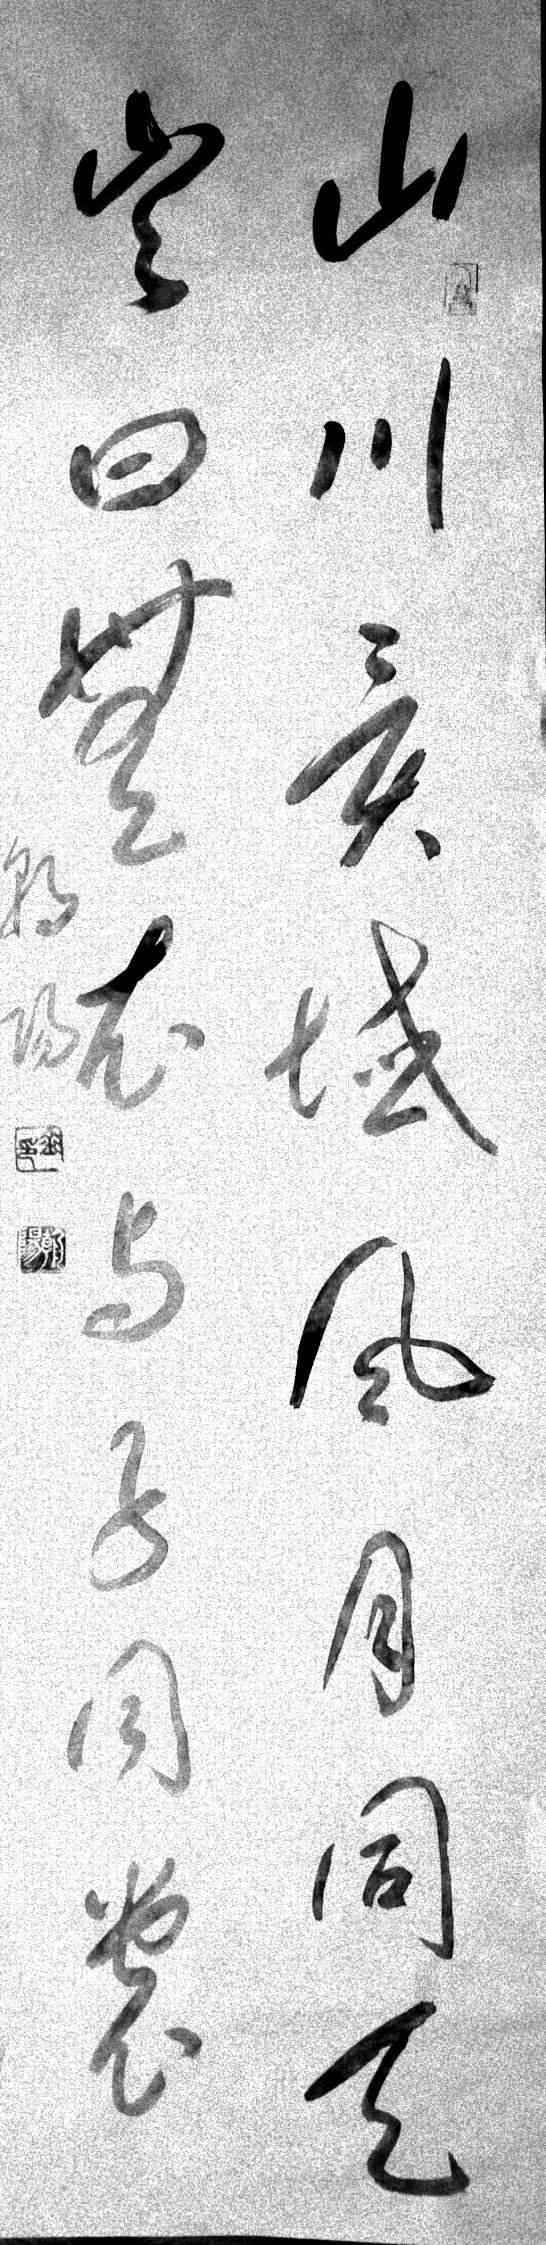 山川異域風月同天
豈曰無衣与子同裳